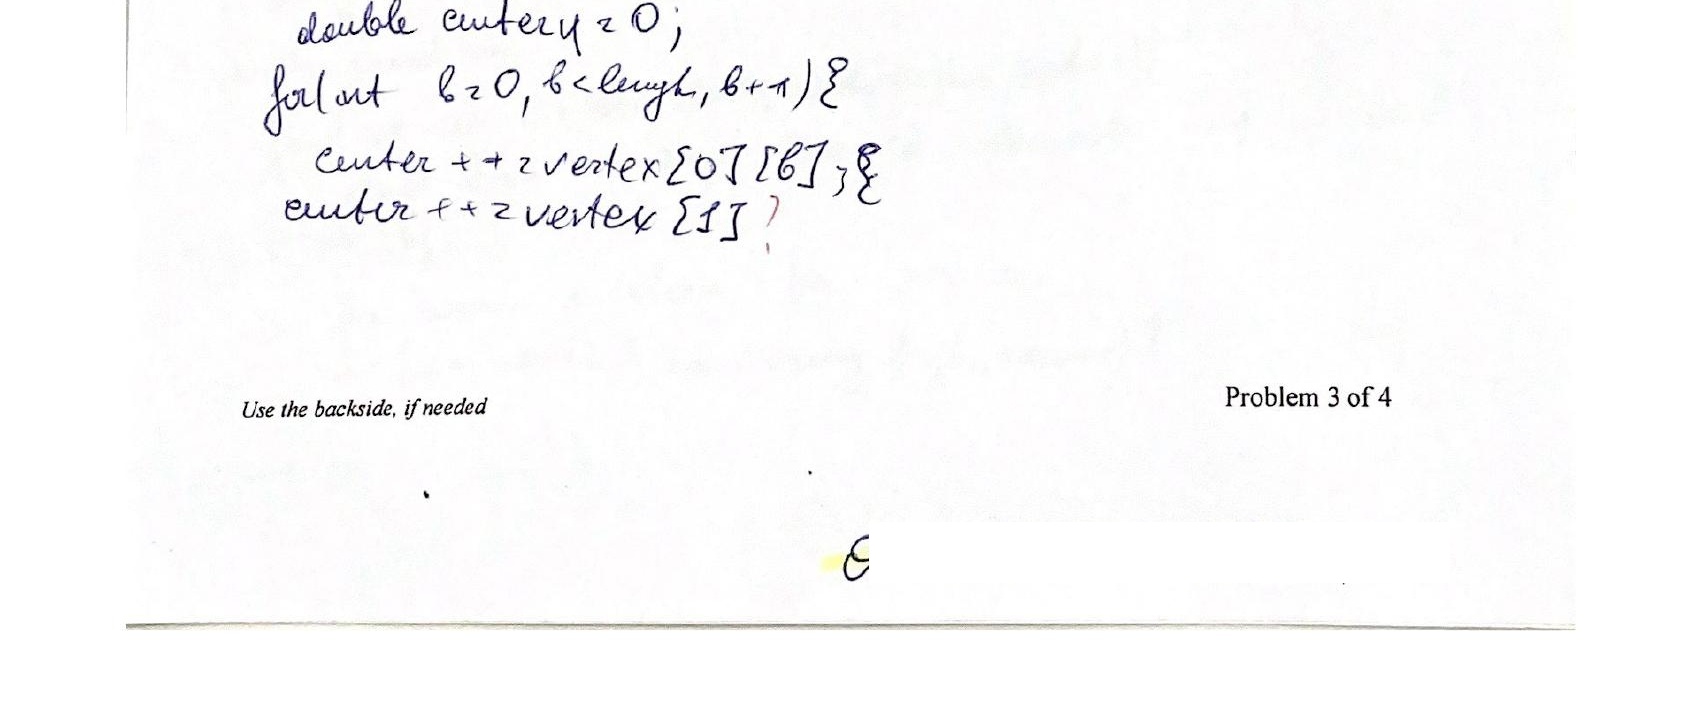 double centery = 0;
for(int b=0, b<lengh, b++){
center ++ = vertex[0][b];}
center ++ = vertex [1] ?
Use the backside, if needed
Problem 3 of 4